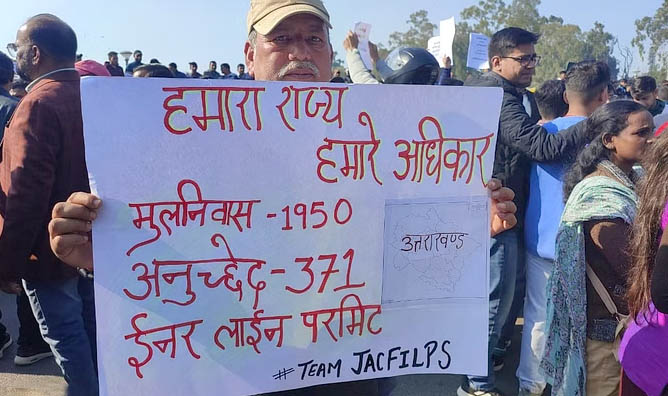 हमारा राज्य
हमारे अधिकार
मुलनिवास - 1950
अनुच्छेद - 371
ईनर लाईन परमिट
उत्तराखण्ड
#TEAM JACFILPS